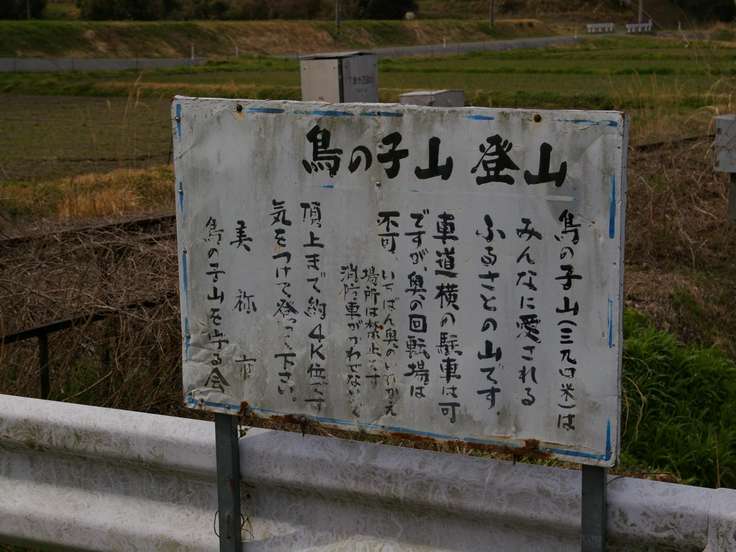 鳥の子山 登山
鳥の子山(三九四米)は
みんなに愛される
ふるさとの山です。
車道横の駐車は可
ですが、奥の回転場は
不可、いちばん奥の
場所は禁止です
消防車が
頂上まで約4K位です
気をつけて登って下さい。
美祢市
鳥の子山を守る会